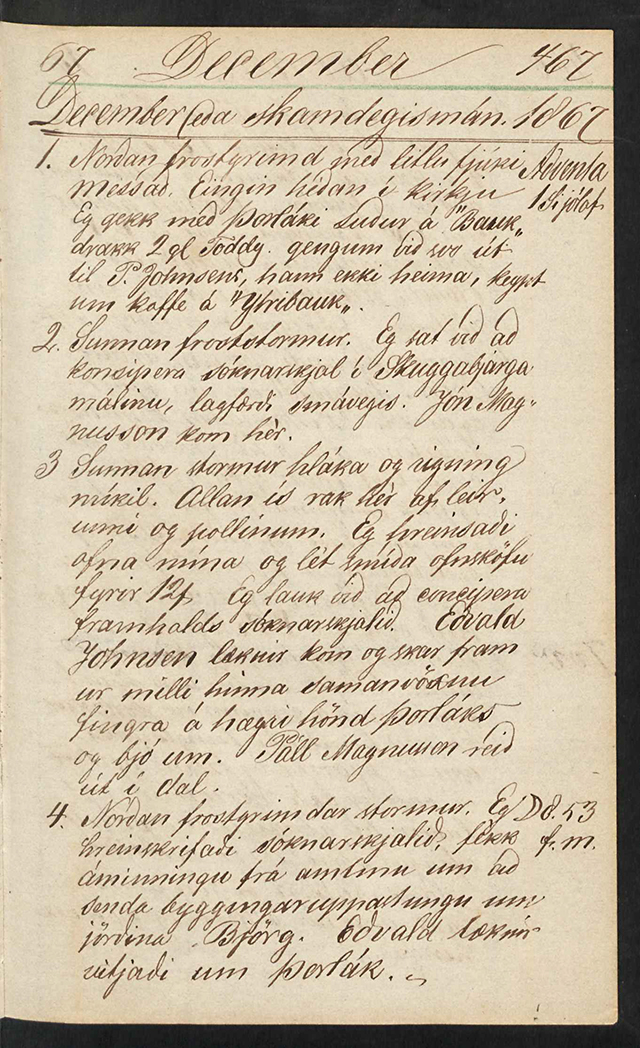 67 December 467
December (eða skamdegismán. 1867
1. Norðan frostgrimd með litlu fjúki Adventa
messað. Eingin héðan í kirkju 1 S í jólaf
Eg gekk með Þorláki suður á "Bauk„
drakk 2 gl Toddy. gengum við svo út
til P. Johnsens, hann ekki heima, keypt
um kaffe á "Ytribauk„.
2. Sunnan froststormur. Eg sat við að
konsipera sóknarskjal í Skuggabjarga
málinu, lagfærði smávegis. Jón Mag-
nusson kom hér.
3 Sunnan stormur hláka og rigning
mikil. Allan ís rak hér af leir-
unni og pollinum. Eg hreinsaði
ofna mína og lét smíða ofnsköfu
fyrir 12f Eg lauk við að concipera
framhalds sóknarskjalið. Edvald
Johnsen læknir kom og skar fram
úr milli hinna samanvöxnu
fingra á hægri hönd Þorláks
og bjó um. Páll Magnusson reið
út í dal.
4. Norðan frostgrimdar stormur. Eg D 8.53
hreinskrifaði sóknarskjalið, fékk f.m.
áminningu frá amtinu um að
senda byggingaruppástungu um
jörðina Björg. Edvald læknir
vitjaði um Þorlák.